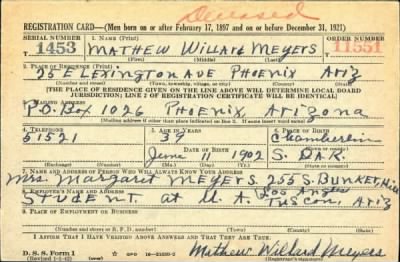 Deceased
REGISTRATION CARD—(Men born on or after February 17, 1897 and on or before December 31, 1921)
SERIAL NUMBER 1. NAME (Print) ORDER NUMBER
1453 MATHEW WILLARD MEYERS 11551
(First) (Middle) (Last)
2. PLACE OF RESIDENCE (Print)
25 E LEXINGTON AVE PHOENIX ARIZ
(Number and street) (Town, township, village, or city) (County) (State)
[THE PLACE OF RESIDENCE GIVEN ON THE LINE ABOVE WILL DETERMINE LOCAL BOARD
JURISDICTION; LINE 2 OF REGISTRATION CERTIFICATE WILL BE IDENTICAL]
3. MAILING ADDRESS
P.O. Box 1026 PHOENIX, ARIZONA
[Mailing address if other than place indicated on line 2. If same insert word same]
4. TELEPHONE 5. AGE IN YEARS 6. PLACE OF BIRTH
51521 39 Chamberlin
DATE OF BIRTH
June 11 1902 S. DAK.
(Exchange) (Number) (Mo.) (Day) (Yr.) (State or country)
7. NAME AND ADDRESS OF PERSON WHO WILL ALWAYS KNOW YOUR ADDRESS
Mrs. Margaret MEYERS. 255 S. BUNKER Hill
8. EMPLOYER'S NAME AND ADDRESS Los Angles
STUDENT. at U. A. TUSCON, ARIZ
9. PLACE OF EMPLOYMENT OR BUSINESS
(Number and street or R. F. D. number) (Town) (County) (State)
I AFFIRM THAT I HAVE VERIFIED ABOVE ANSWERS AND THAT THEY ARE TRUE.
D. S. S. Form 1 GPO Mathew Willard Meyers
(Revised 1-1-42) (over) (Registrant's signature)